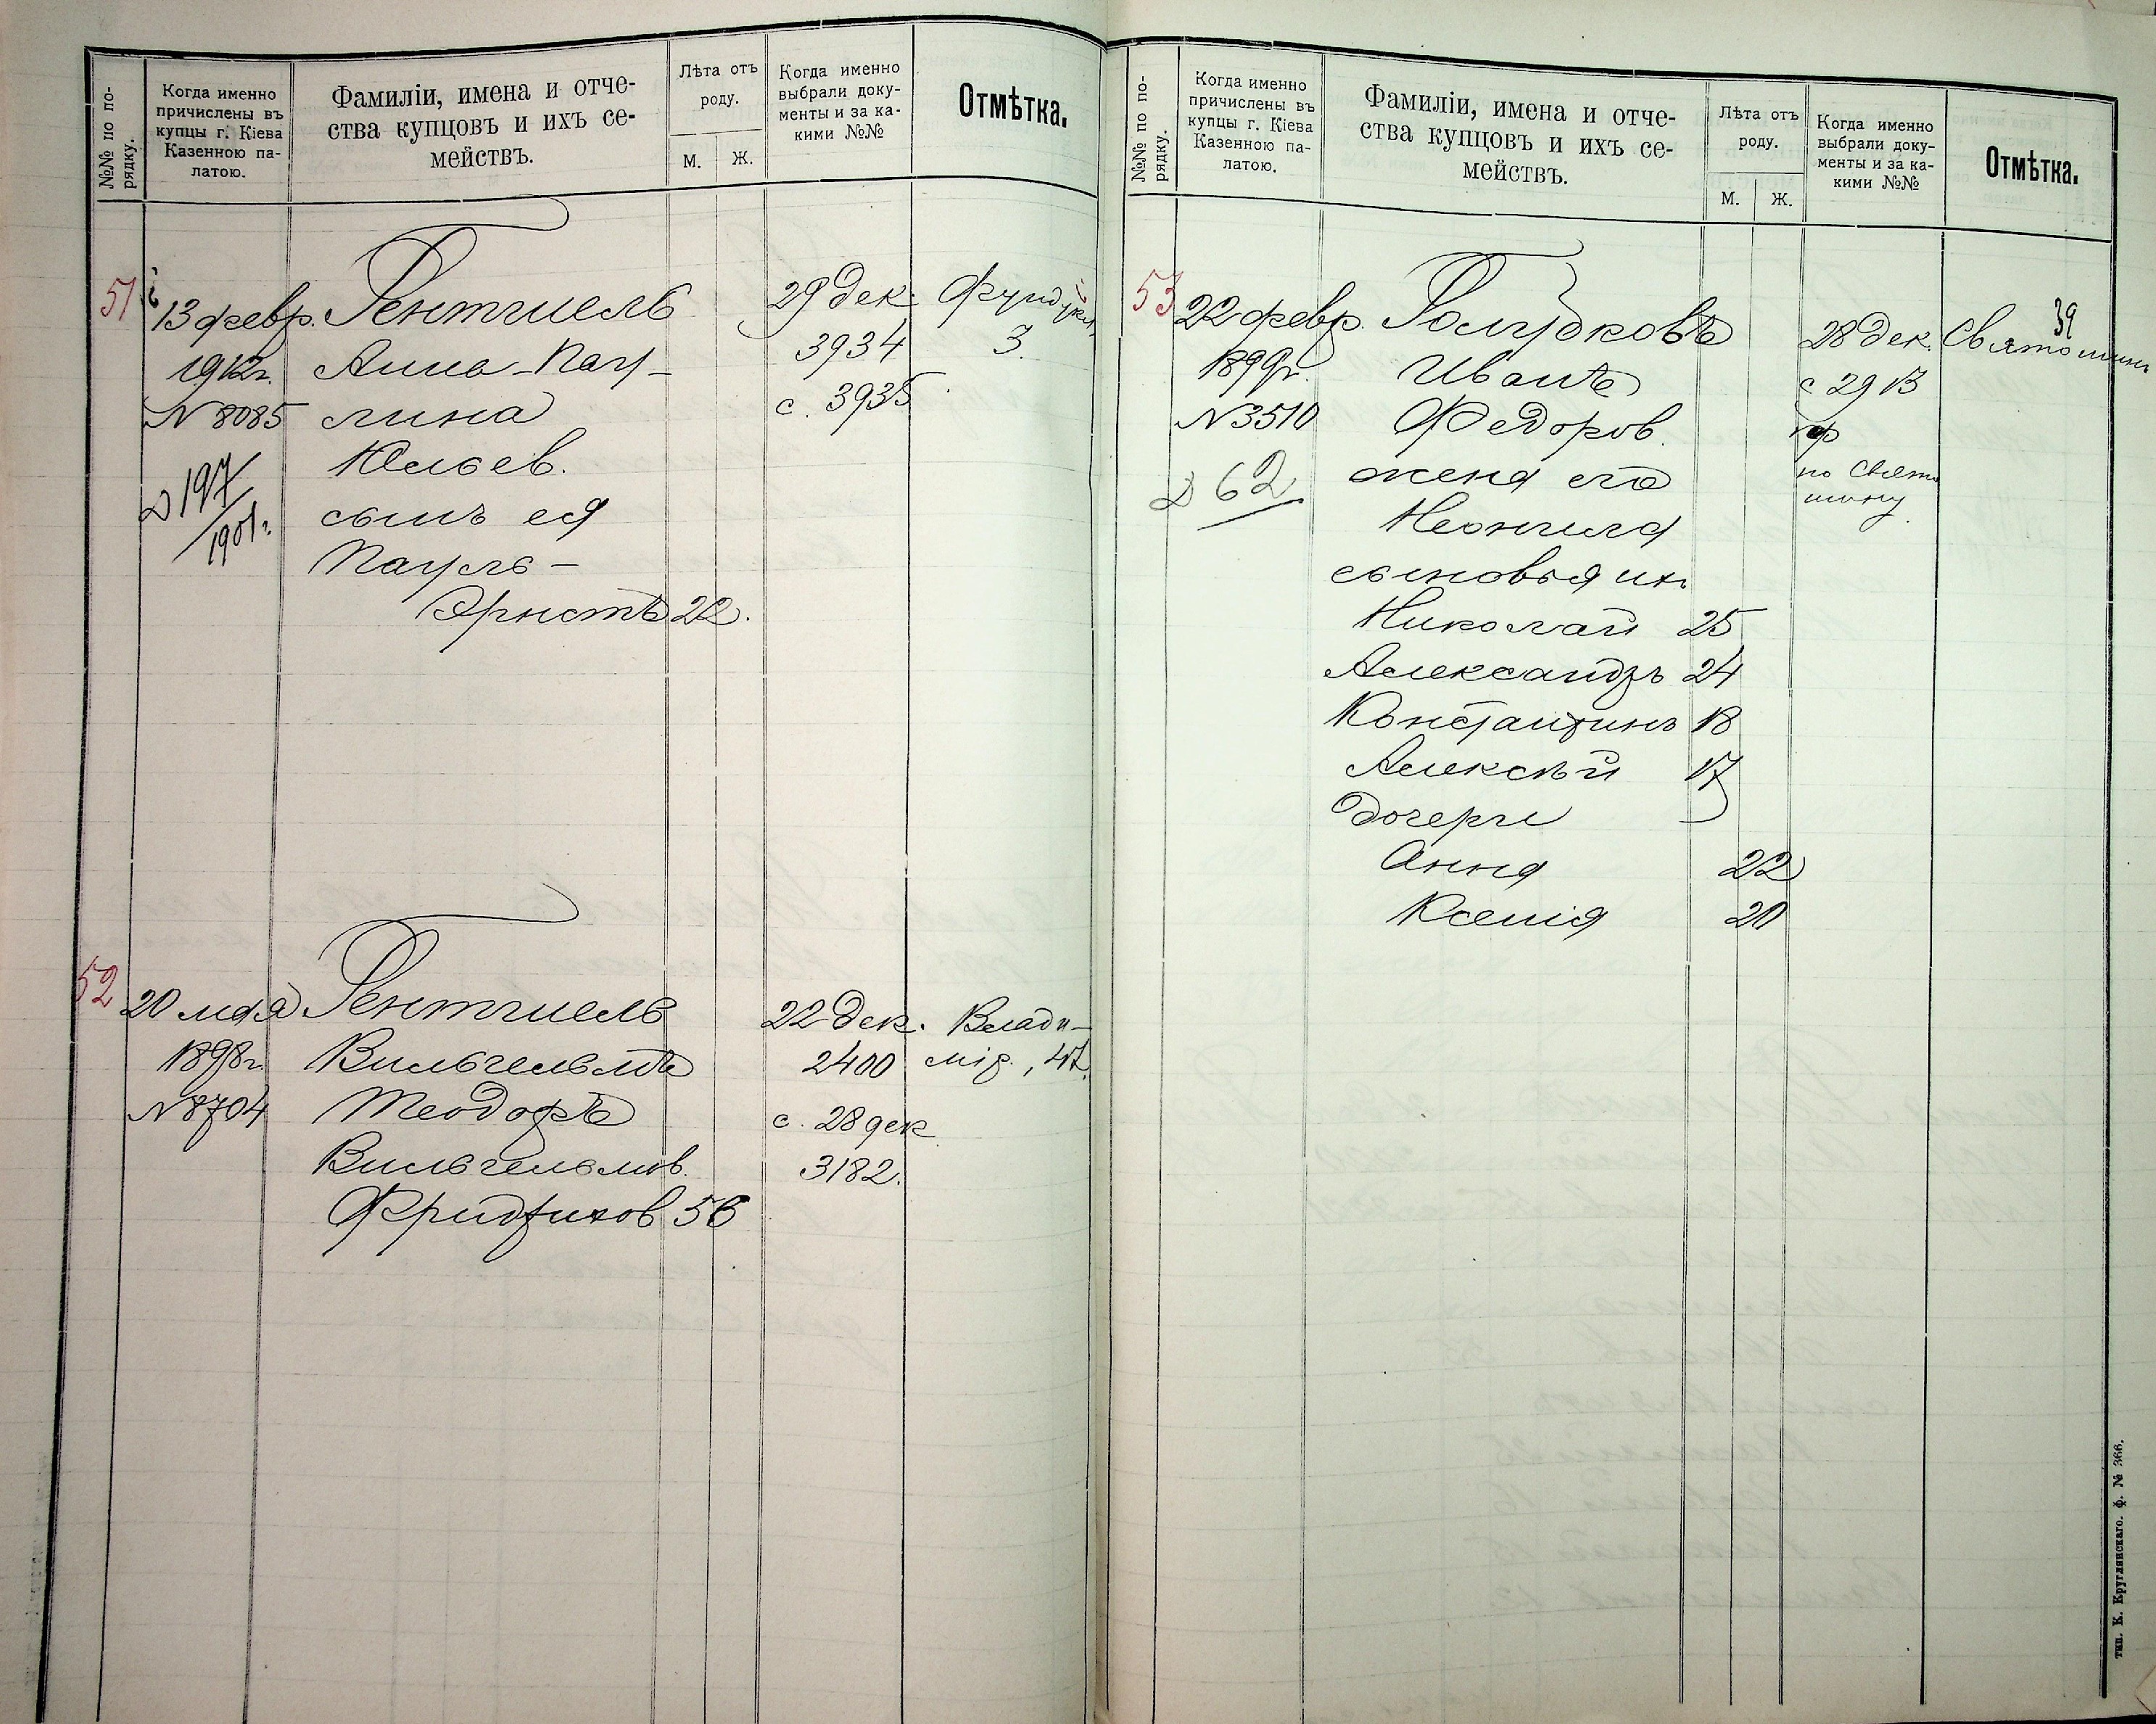 №№ по по-
рядку.
Когда именно
причислены въ
купцы г. Кіева
Казенною па-
латою.
Фамиліи, имена и отче-
ства купцовъ и ихъ се-
мействъ.
Лѣта отъ
роду.
М.
Ж.
Когда именно
выбрали доку-
менты и за ка-
кими №№
Отмѣтка.
51
13 февр.
1912г.
N 8085
197
1901г.
Гентшель
Анна-Пау-
лина
Юльев.
сынъ ея
Пауль-
Эрнстъ 22.
29 дек.
3934
с. 3935
Фундукл.
3.
52
20 мая
1898г.
N 8704
Гентшель
Вильгельмъ
Теодоръ
Вильгельмов.
Фридрихов 56
22 дек.
2400
с. 28 дек
3182.
Влади-
мір., 47.
№№ по по-
рядку.
Когда именно
причислены въ
купцы г. Кіева
Казенною па-
латою.
Фамиліи, имена и отче-
ства купцовъ и ихъ се-
мействъ.
Лѣта отъ
роду.
М.
Ж.
Когда именно
выбрали доку-
менты и за ка-
кими №№
Отмѣтка.
39
53
22 февр.
1899г.
N 3510
62
Голубковъ
Иванъ
Федоров.
жена его
Неонила
сыновья их.
Николай 25
Александръ 24
Константинъ 18
Алексѣй 17
дочери
Анна 22
Ксенія 20
28 дек.
с 2913
по Свято
шину
Святошин
тип. К. Круглянскаго. ф. № 366.